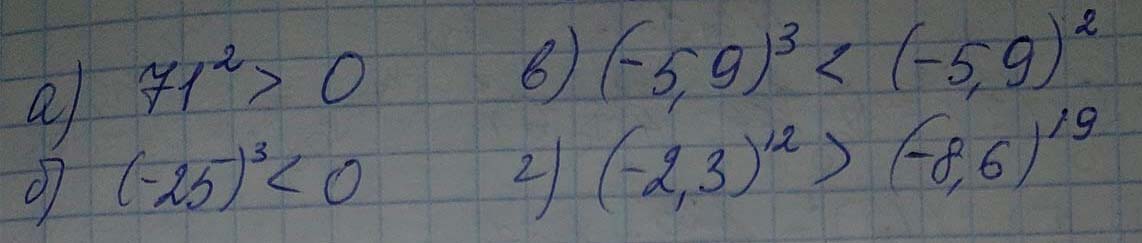 а) 71² > 0
б) (-25)³ < 0
в) (-5,9)³ < (-5,9)²
г) (-2,3)¹² > (-8,6)¹⁹